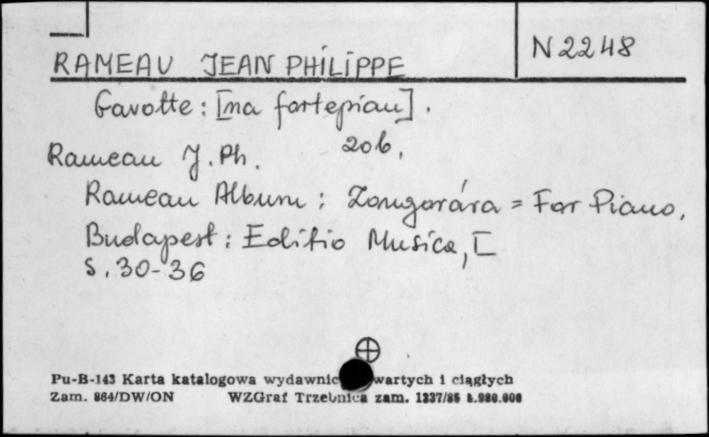 N 2248
RAMEAU JEAN PHILIPPE
Gavotte : [na fortepian] .
Rameau J. Ph. zob.
Rameau Album : Zongorára = For Piano.
Budapest : Editio Musica, [
S. 30-36
Pu-B-143 Karta katalogowa wydawnic wartych i ciągłych
Zam. 864/DW/ON WZGraf Trzebnica zam. 1337/85